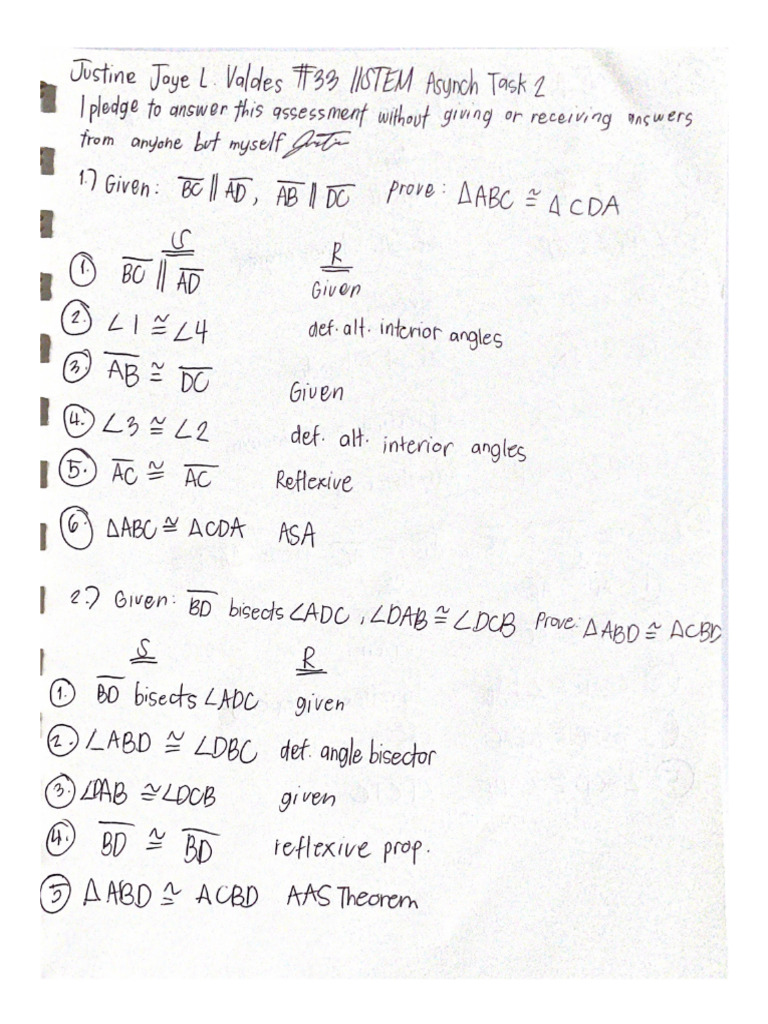 Justine Joye L. Valdes #33 11STEM Asynch Task 2
I pledge to answer this assessment without giving or receiving answers
from anyone but myself
1.) Given: B̅C̅ || A̅D̅, A̅B̅ || D̅C̅ Prove: △ABC ≅ △CDA
S R
1. B̅C̅ || A̅D̅ Given
2. ∠1 ≅ ∠4 def. alt. interior angles
3. A̅B̅ ≅ D̅C̅ Given
4. ∠3 ≅ ∠2 def. alt. interior angles
5. A̅C̅ ≅ A̅C̅ Reflexive
6. △ABC ≅ △CDA ASA
2.) Given: B̅D̅ bisects ∠ADC, ∠DAB ≅ ∠DCB Prove: △ABD ≅ △CBD
S R
1. B̅D̅ bisects ∠ADC given
2. ∠ABD ≅ ∠DBC def. angle bisector
3. ∠DAB ≅ ∠DCB given
4. B̅D̅ ≅ B̅D̅ reflexive prop.
5 △ABD ≅ △CBD AAS Theorem